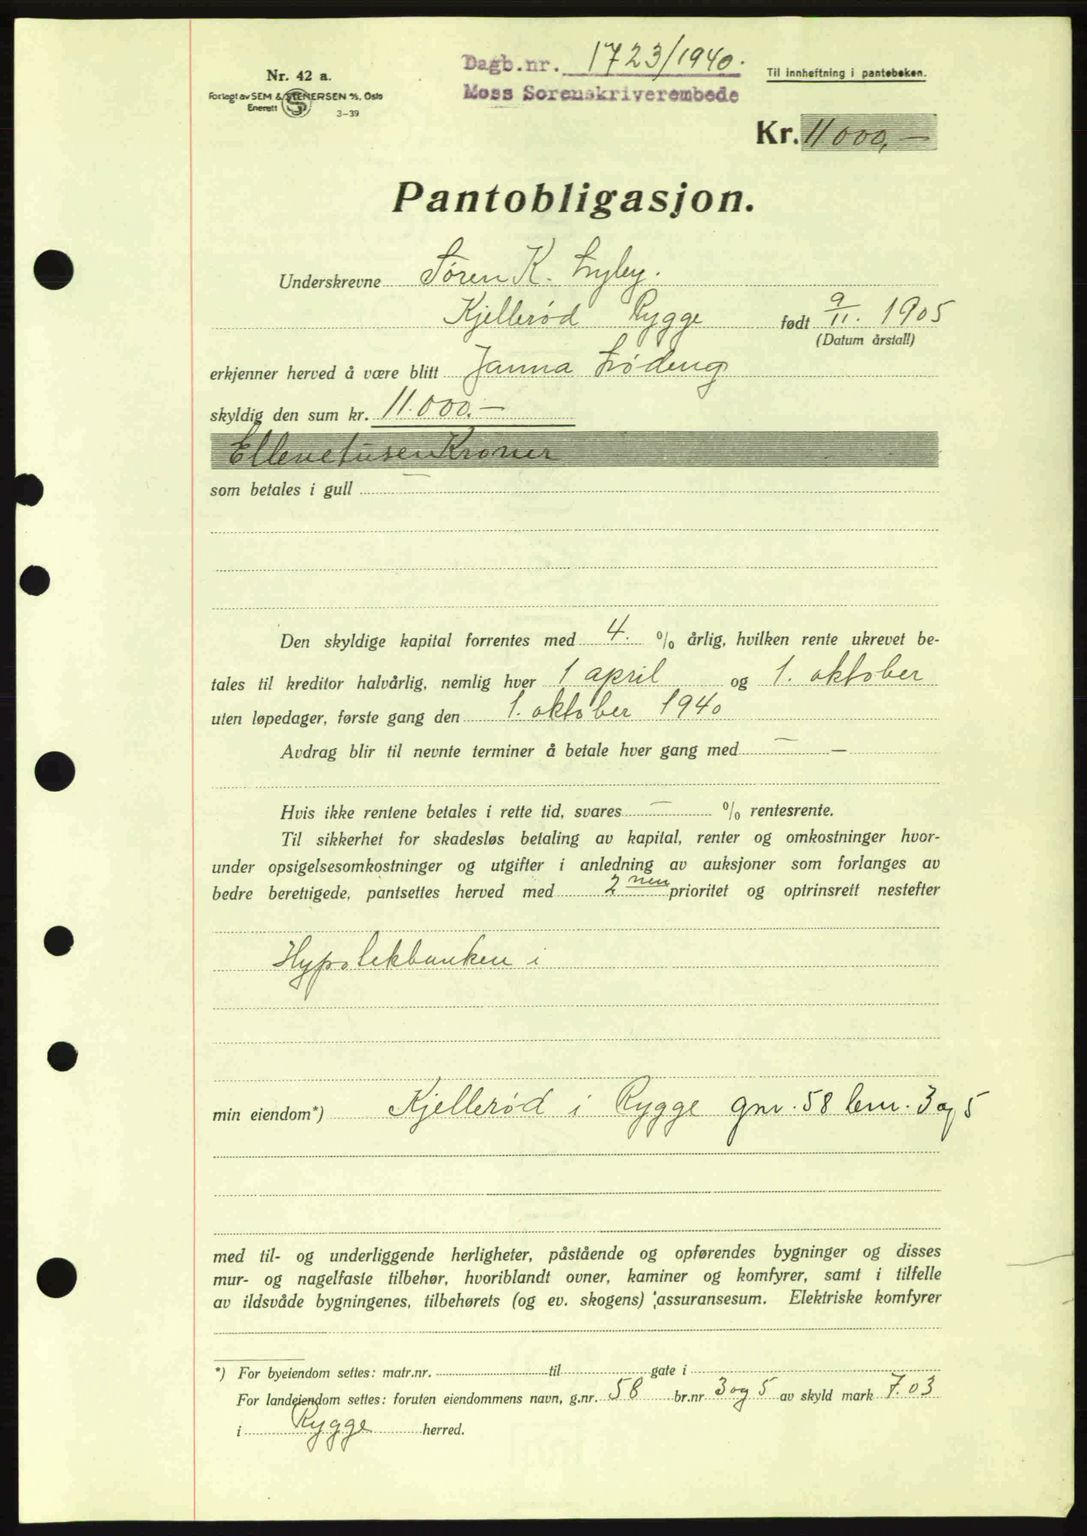 Nr. 42 a.
Forlagt av SEM & STENERSEN A/S, Oslo
Enerett
3-39
Dagb.nr. 1723/1940.
Moss Sorenskriverembede
Til innheftning i panteboken.
Kr. 11000,—
Pantobligasjon.
Underskrevne Søren K. Lyby.
Kjellerød Rygge født 9/11. 1905
(Datum årstall)
erkjenner herved å være blitt Janna Lrödeng
skyldig den sum kr. 11.000.—
Ellevetusen Kroner
som betales i gull —
Den skyldige kapital forrentes med 4. % årlig, hvilken rente ukrevet be-
tales til kreditor halvårlig, nemlig hver 1 april og 1. oktober
uten løpedager, første gang den 1. oktober 1940
Avdrag blir til nevnte terminer å betale hver gang med — —
Hvis ikke rentene betales i rette tid, svares — % rentesrente.
Til sikkerhet for skadesløs betaling av kapital, renter og omkostninger hvor-
under opsigelsesomkostninger og utgifter i anledning av auksjoner som forlanges av
bedre berettigede, pantsettes herved med 2 nen prioritet og optrinsrett nestefter
Hypotekbanken i
min eiendom*) Kjellerød i Rygge gnr. 58 bnr. 3 og 5
med til- og underliggende herligheter, påstående og opførendes bygninger og disses
mur- og nagelfaste tilbehør, hvoriblandt ovner, kaminer og komfyrer, samt i tilfelle
av ildsvåde bygningenes, tilbehørets (og ev. skogens) assuransesum. Elektriske komfyrer
*) For byeiendom settes: matr.nr. til gate i
For landeiendom settes: foruten eiendommens navn, g.nr. 58 br.nr 3 og 5 av skyld mark 7.03
i Rygge herred.